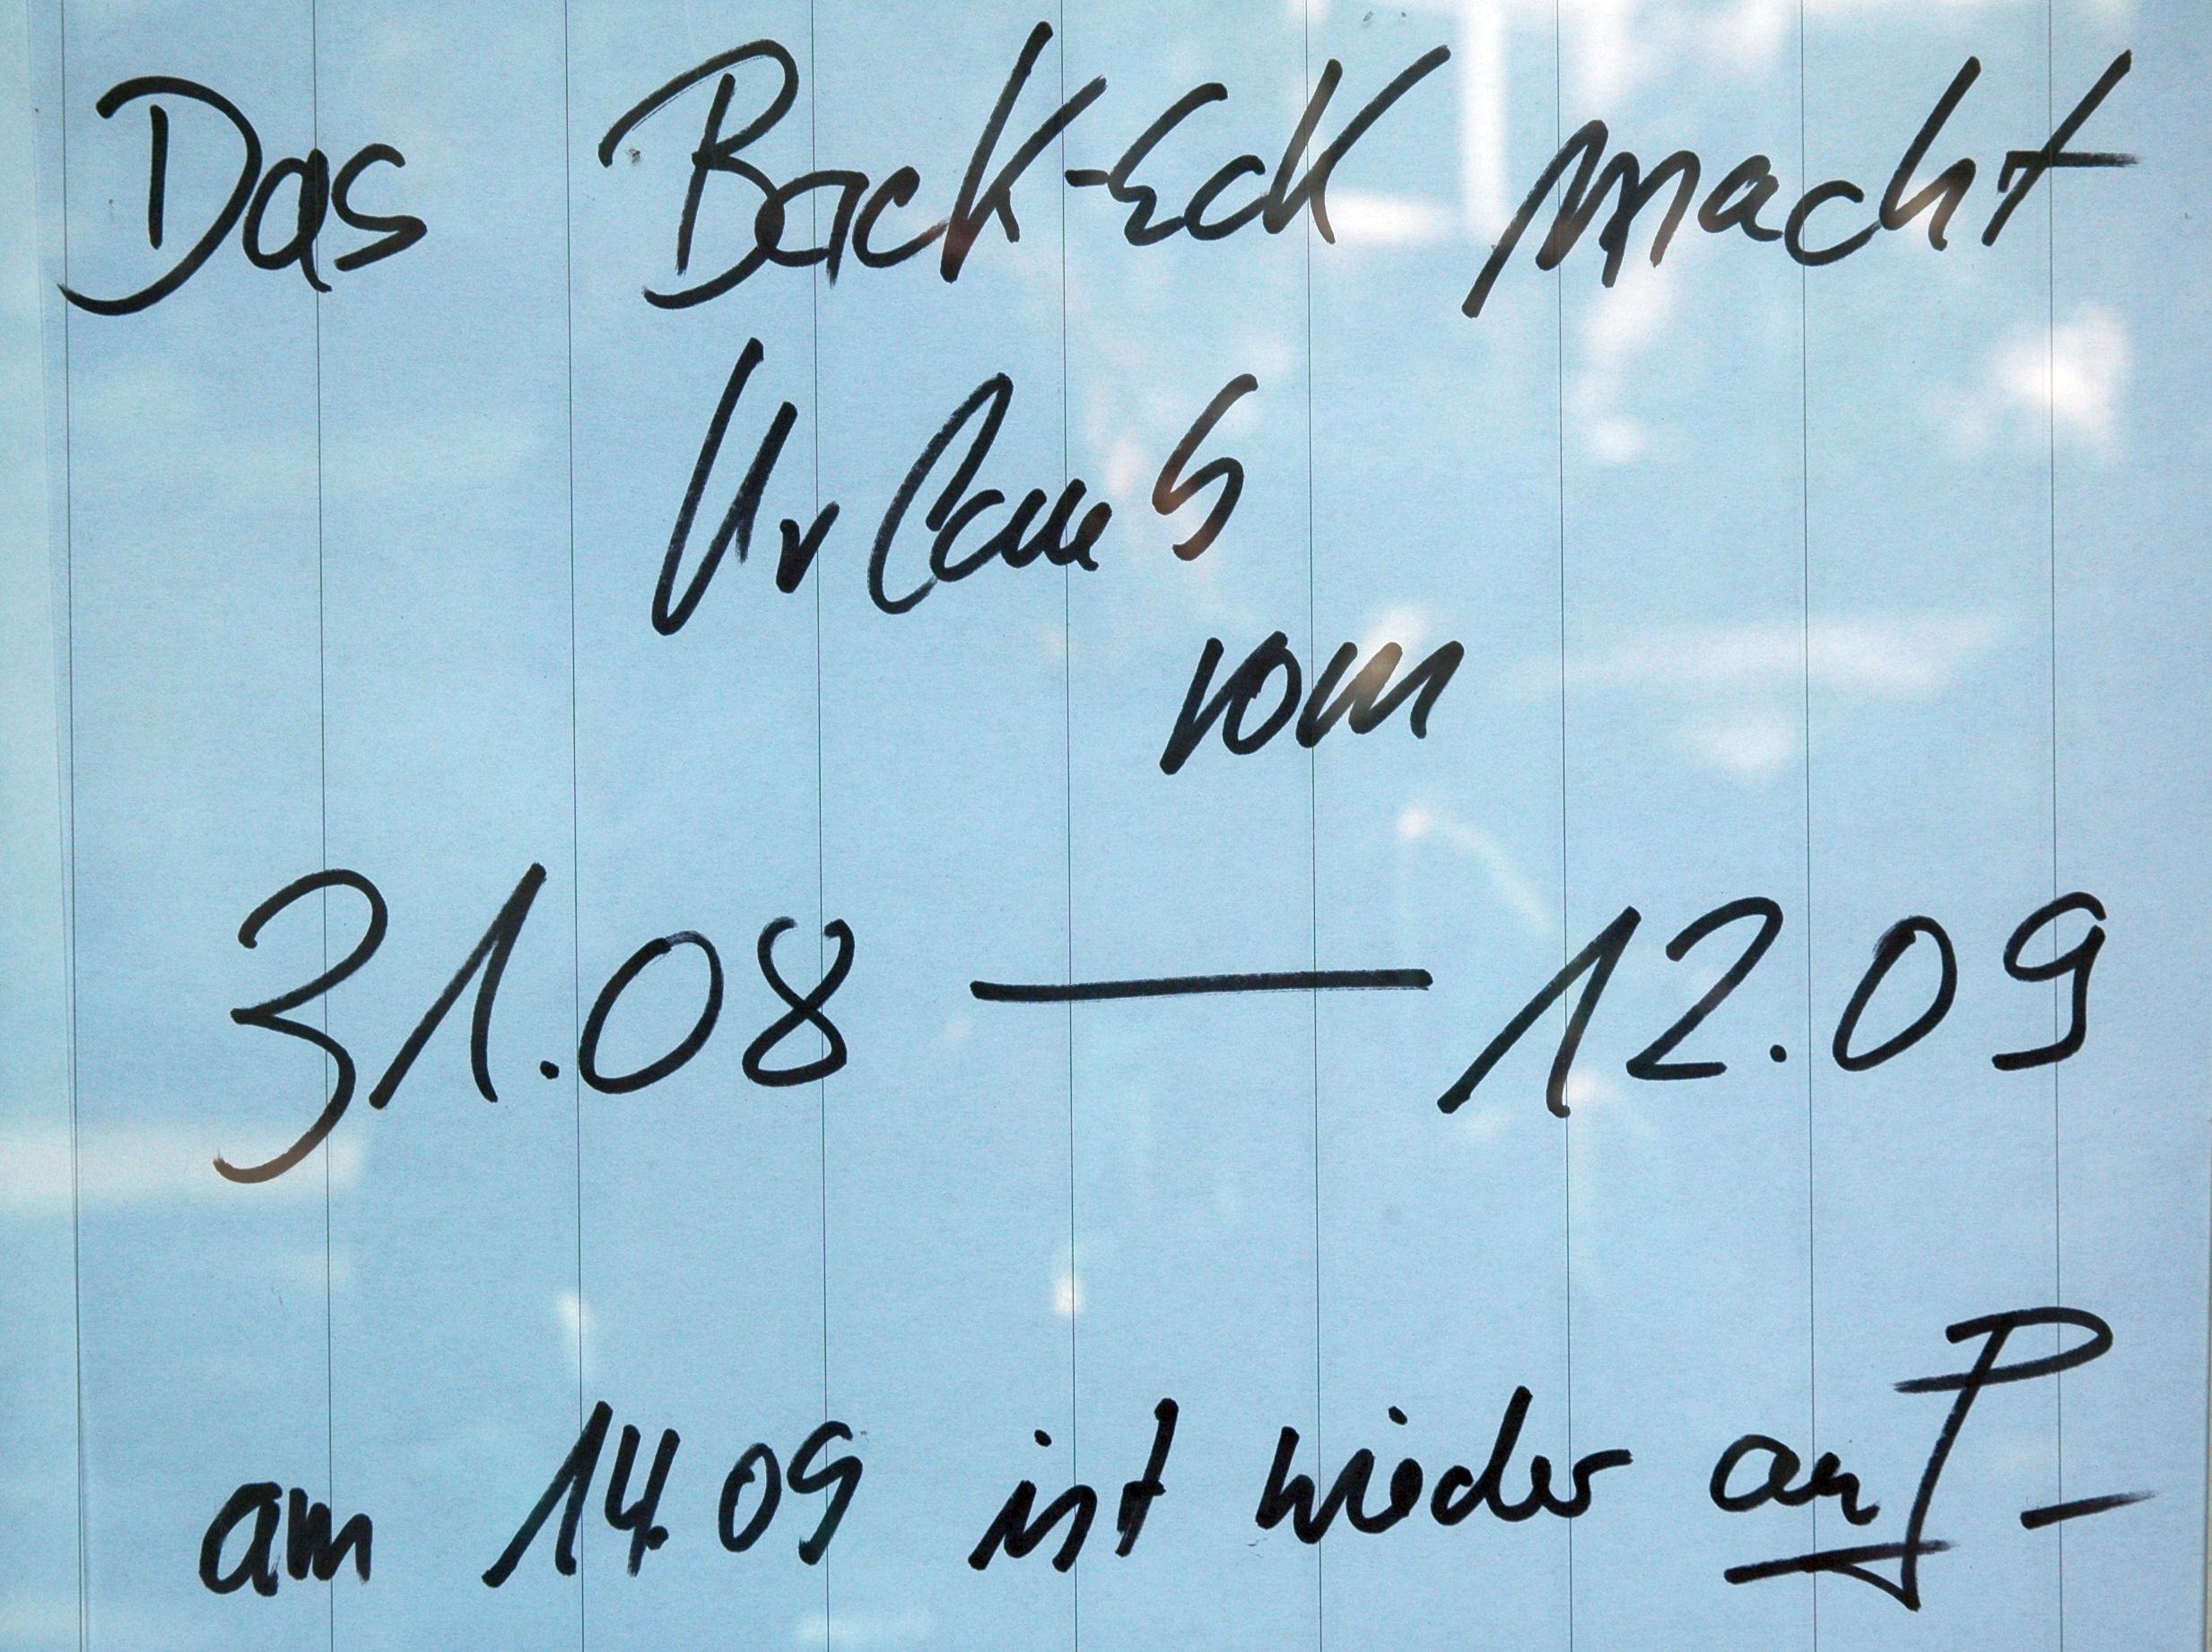 Das Back-Eck macht
Urlaub
vom
31.08 — 12.09
am 14.09 ist wieder auf -